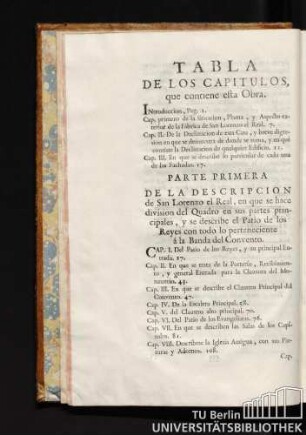 TABLA
DE LOS CAPITULOS,
que contiene esta Obra.
Introduccion, Pag. 1.
Cap. primero de la Situacion, Planta, y Aspecto ex-
terior de la Fabrica de San Lorenzo el Real. 7.
Cap. II. De la Declinacion de esta Casa, y breve digre-
sion en que se demuestra de donde se toma, y en què
consiste la Declinacion de qualquier Edificio. 11.
Cap. III. En que se describe en particular de cada una
de las Fachadas. 17.
PARTE PRIMERA
DE LA DESCRIPCION
de San Lorenzo el Real, en que se hace
division del Quadro en sus partes prin-
cipales, y se describe el Patio de los
Reyes con todo lo perteneciente
à la Banda del Convento.
CAP. I. Del Patio de los Reyes, y su principal En-
trada. 27.
Cap. II. En que se trata de la Porteria, Recibimien-
to, y general Entrada para la Clausura del Mo-
nasterio. 43.
Cap. III. En que se describe el Claustro Principal del
Convento. 47.
Cap. IV. De la Escalera Principal. 58.
Cap. V. del Claustro alto principal. 70.
Cap. VI. Del Patio de los Evangelistas. 76.
Cap. VII. En que se describen las Salas de los Capi-
tulos. 81.
Cap. VIII. Describese la Iglesia Antigua, con sus Pin-
turas y Adornos. 108.
Cap.
TU Berlin
UNIVERSITÄTSBIBLIOTHEK